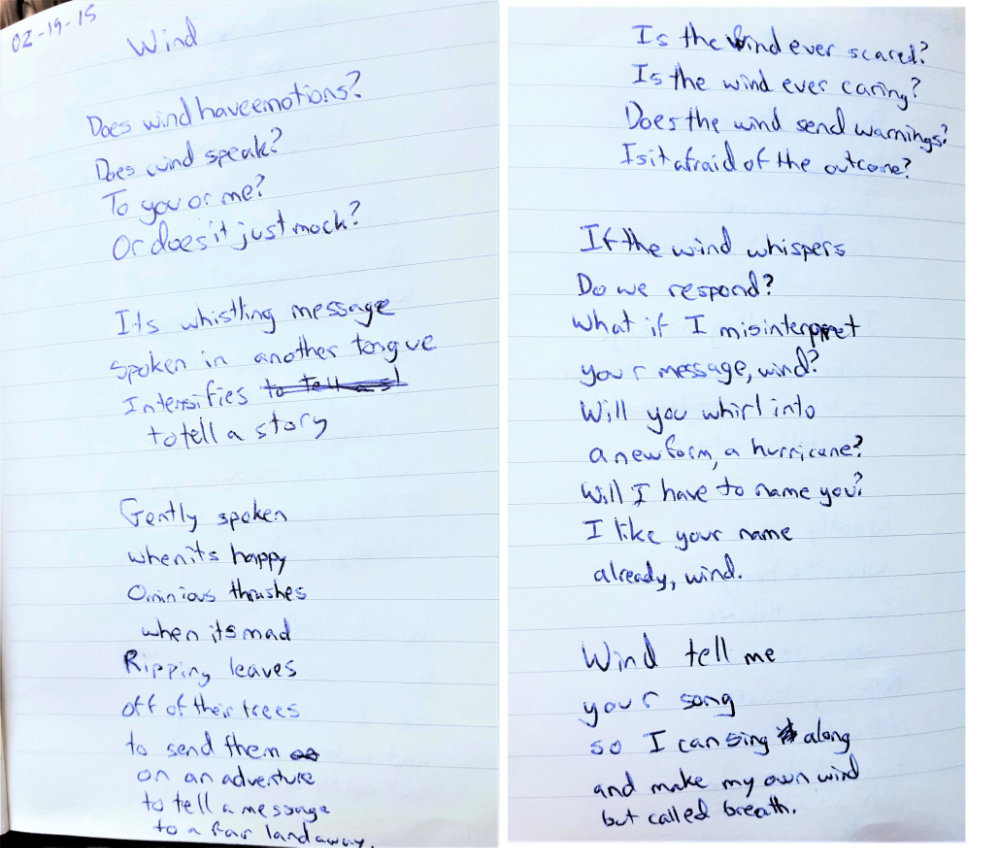 02-19-15
Wind
Does wind have emotions?
Does wind speak?
To you or me?
Or does it just mock?
Its whistling message
spoken in another tongue
Intensifies to tell a s
to tell a story
Gently spoken
when its happy
Ominious thrushes
when its mad
Ripping leaves
off of their trees
to send them
on an adventure
to tell a message
to a far land away.
Is the wind ever scared?
Is the wind ever caring?
Does the wind send warnings?
Is it afraid of the outcome?
If the wind whispers
Do we respond?
What if I misinterpret
your message, wind?
Will you whirl into
a new form, a hurricane?
Will I have to name you?
I like your name
already, wind.
Wind tell me
your song
so I can sing along
and make my own wind
but called breath.